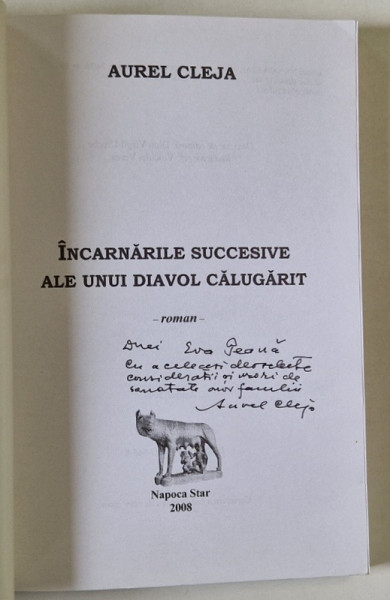 AUREL CLEJA
ÎNCARNĂRILE SUCCESIVE
ALE UNUI DIAVOL CĂLUGĂRIT
– roman –
Dnei Eva Peană
Cu aceleași deosebite
considerații și urări de
sănătate
Aurel Cleja
Napoca Star
2008